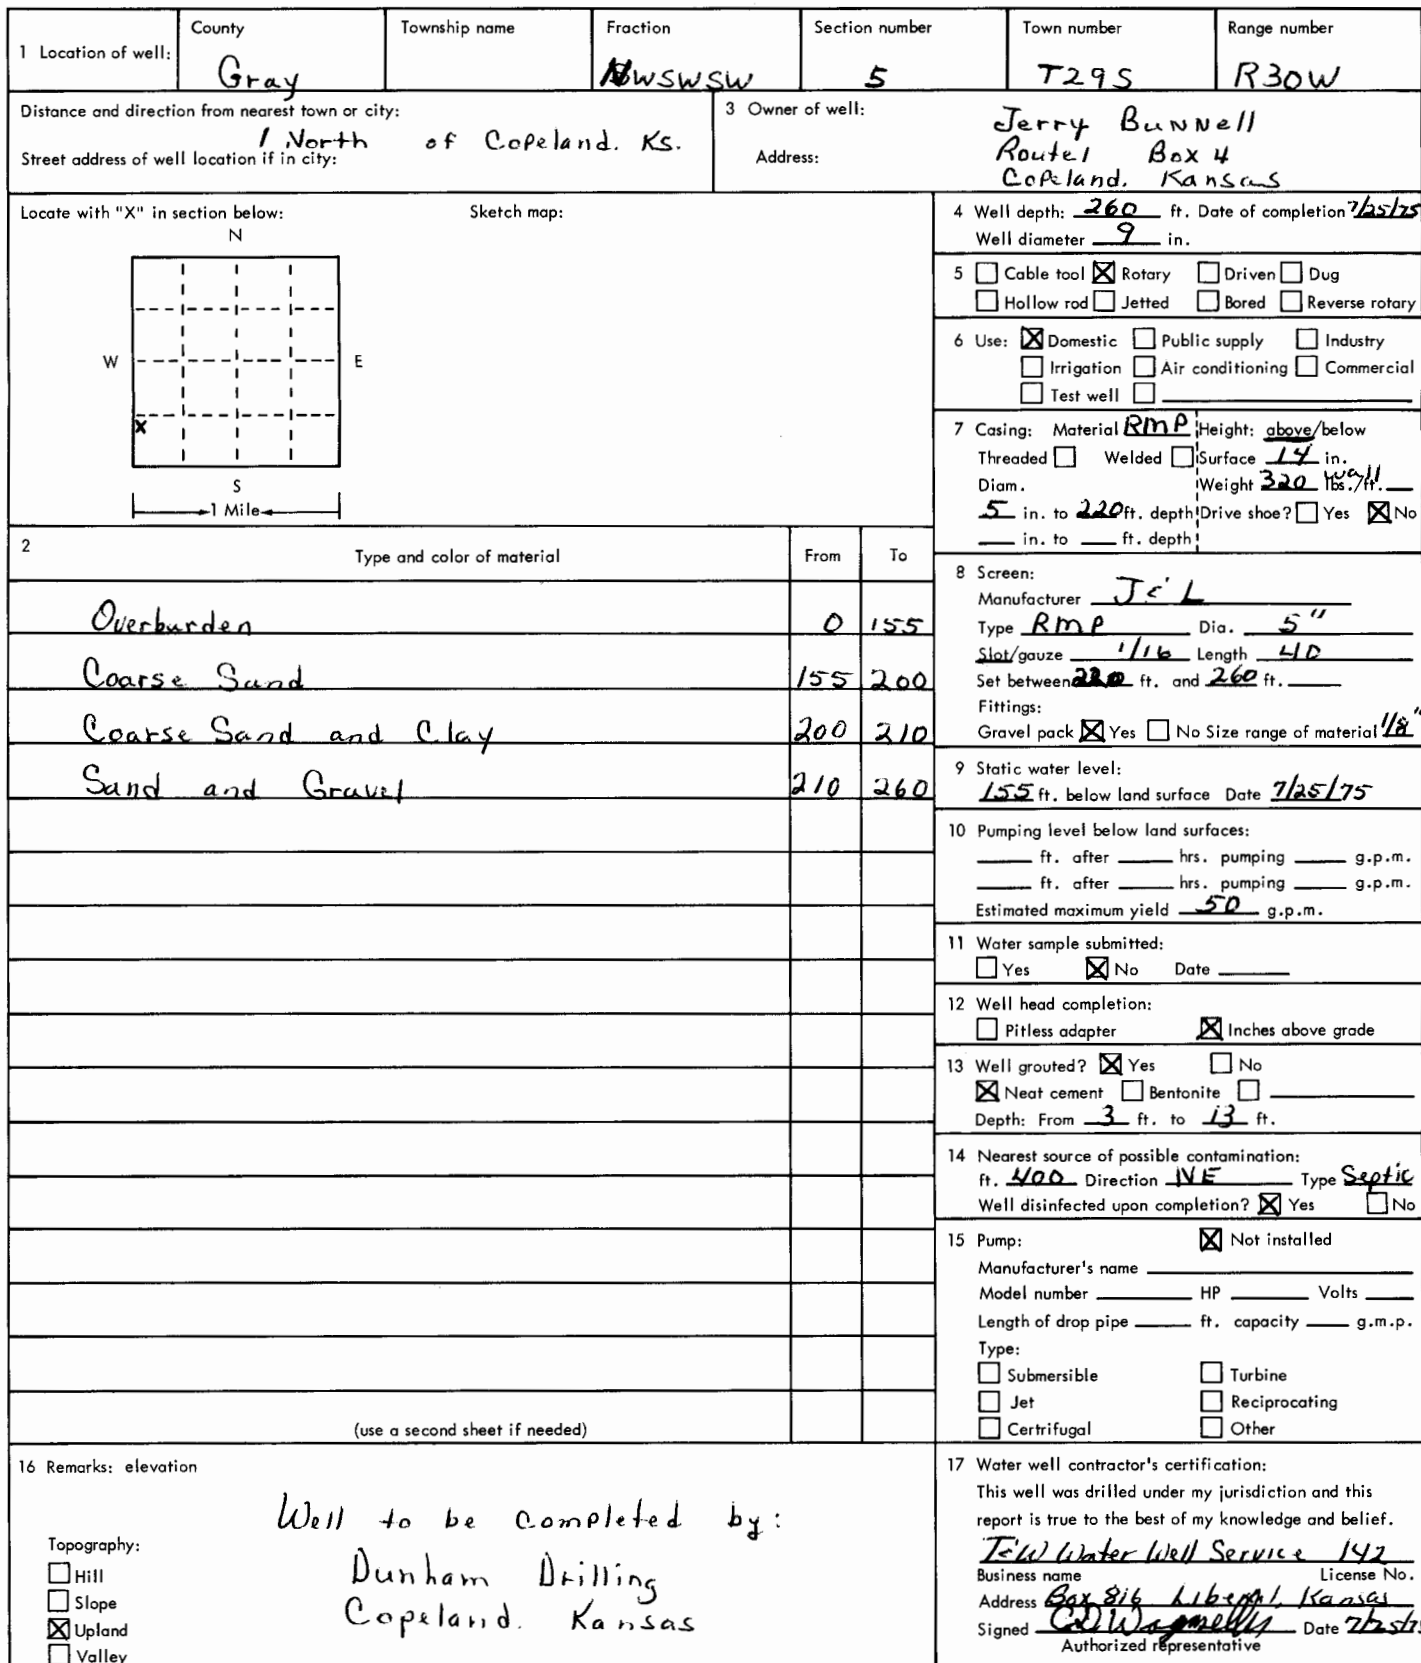 1 Location of well:
County
Gray
Township name
Fraction
NWSWSW
Section number
5
Town number
T29S
Range number
R30W
Distance and direction from nearest town or city:
1 North of Copeland. Ks.
Street address of well location if in city:
3 Owner of well:
Jerry Bunnell
Address:
Route 1 Box 4
Copeland. Kansas
Locate with "X" in section below:
Sketch map:
N
W
E
X
S
1 Mile
4 Well depth: 260 ft. Date of completion 7/25/75
Well diameter 9 in.
5 ☐ Cable tool ☒ Rotary ☐ Driven ☐ Dug
☐ Hollow rod ☐ Jetted ☐ Bored ☐ Reverse rotary
6 Use: ☒ Domestic ☐ Public supply ☐ Industry
☐ Irrigation ☐ Air conditioning ☐ Commercial
☐ Test well ☐
7 Casing: Material RMP Height: above/below
Threaded ☐ Welded ☐ Surface 14 in.
Diam. Weight 320 wall lbs./ft.
5 in. to 220 ft. depth Drive shoe? ☐ Yes ☒ No
in. to ft. depth
2 Type and color of material From To
Overburden 0 155
Coarse Sand 155 200
Coarse Sand and Clay 200 210
Sand and Gravel 210 260
(use a second sheet if needed)
8 Screen:
Manufacturer J & L
Type RMP Dia. 5"
Slot/gauze 1/16 Length 40
Set between 220 ft. and 260 ft.
Fittings:
Gravel pack ☒ Yes ☐ No Size range of material 1/8"
9 Static water level:
155 ft. below land surface Date 7/25/75
10 Pumping level below land surfaces:
ft. after hrs. pumping g.p.m.
ft. after hrs. pumping g.p.m.
Estimated maximum yield 50 g.p.m.
11 Water sample submitted:
☐ Yes ☒ No Date
12 Well head completion:
☐ Pitless adapter ☒ Inches above grade
13 Well grouted? ☒ Yes ☐ No
☒ Neat cement ☐ Bentonite ☐
Depth: From 3 ft. to 13 ft.
14 Nearest source of possible contamination:
ft. 400 Direction NE Type Septic
Well disinfected upon completion? ☒ Yes ☐ No
15 Pump: ☒ Not installed
Manufacturer's name
Model number HP Volts
Length of drop pipe ft. capacity g.m.p.
Type:
☐ Submersible ☐ Turbine
☐ Jet ☐ Reciprocating
☐ Certrifugal ☐ Other
16 Remarks: elevation
Well to be completed by:
Dunham Drilling
Copeland. Kansas
Topography:
☐ Hill
☐ Slope
☒ Upland
☐ Valley
17 Water well contractor's certification:
This well was drilled under my jurisdiction and this
report is true to the best of my knowledge and belief.
T&W Water Well Service 142
Business name License No.
Address Box 816 Liberal, Kansas
Signed Date 7/25/75
Authorized representative